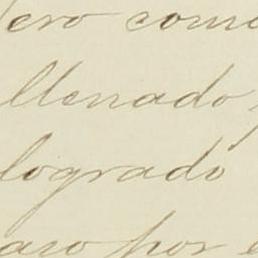 ero como
llenado
logrado
aso por e